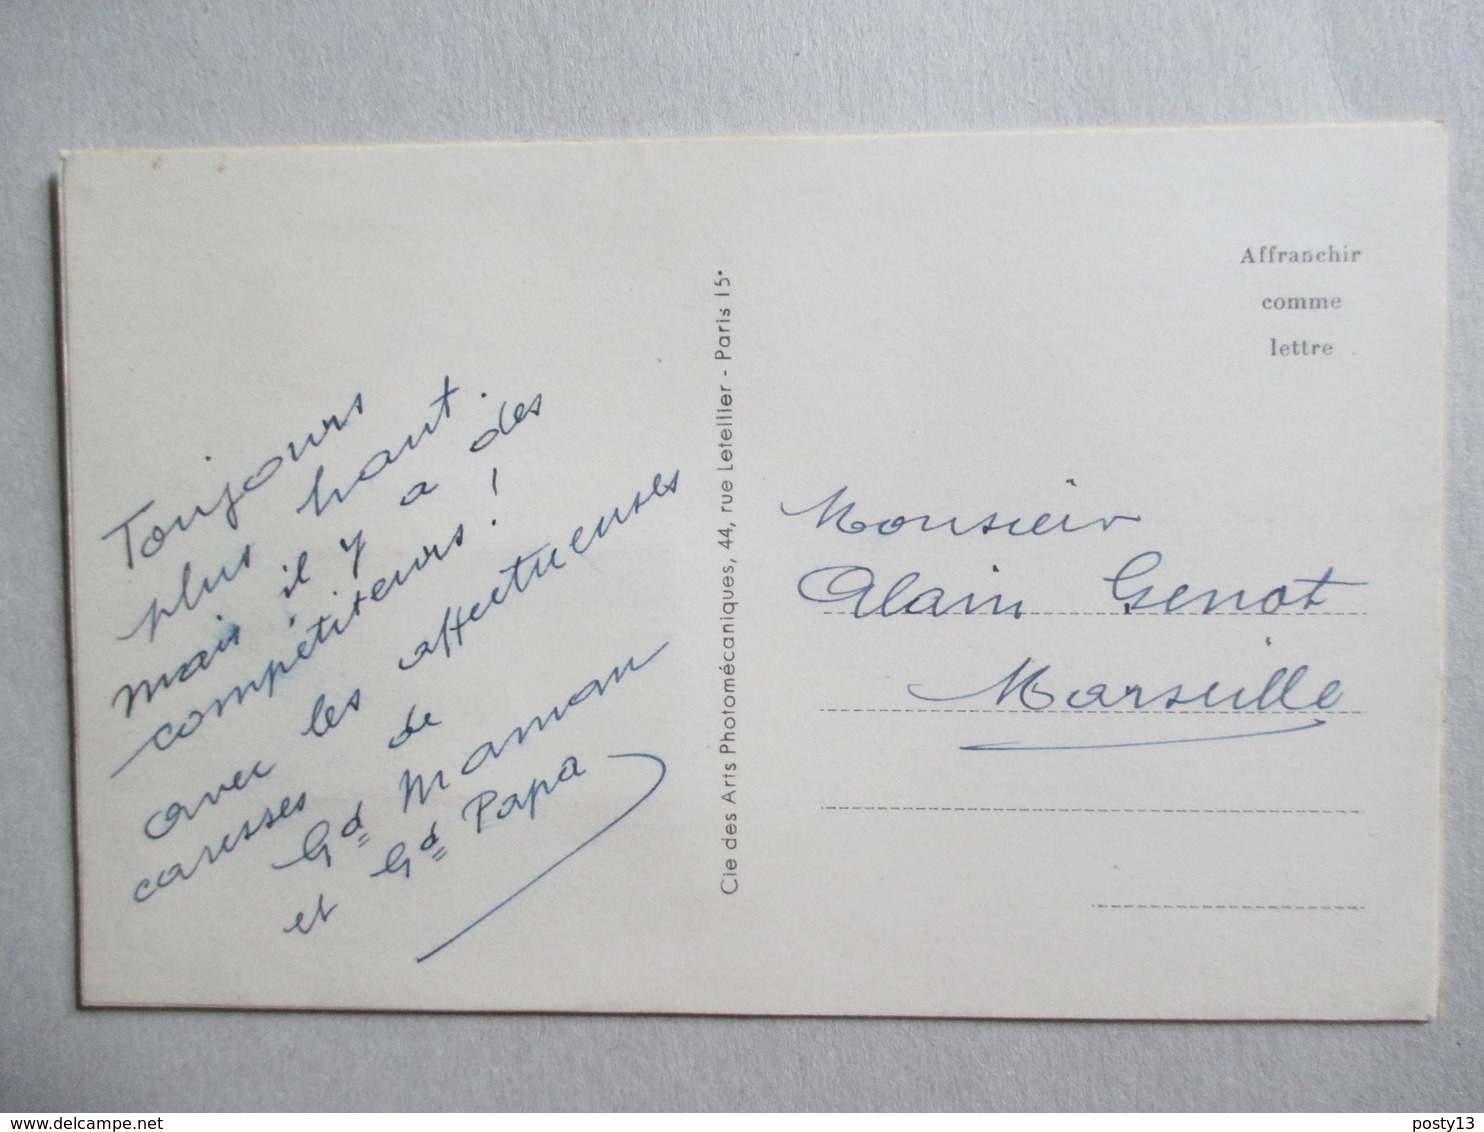 Toujours
plus haut.
mais il y a des
compétiteurs !
avec les affectueuses
caresses de
Gd Maman
et Gd Papa
Cie des Arts Photomécaniques, 44, rue Letellier - Paris 15e
Affranchir
comme
lettre
Monsieur
Alain Genot
Marseille
www.delcampe.net
posty13